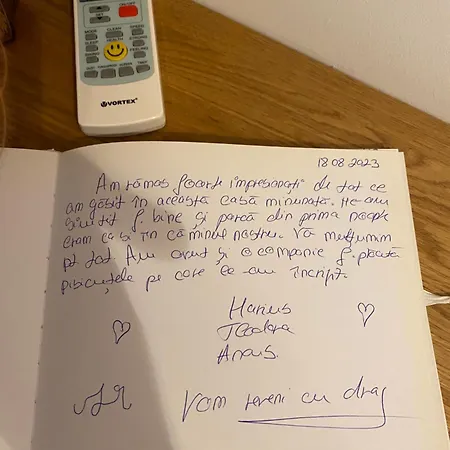 VORTEX
18 08 2023
Am rămas foarte impresionați de tot ce
am găsit în această casă minunată. Ne-am
simțit f. bine și parcă din prima noapte
eram ca și în căminul nostru. Vă mulțumim
pt tot. Am avut și o companie f. plăcută
pisicuțele pe care le-am
Teodora
Vom reveni cu drag